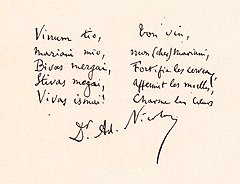 Vinum tio,
Mariani mio,
Bivas mergai,
Stivas megai,
Vivas ismai!
bon vin,
mon (cher) Mariani,
Fortifie les cerveaux,
Affermit les moelles,
Charme les cœurs
Dr. Ad. Nicolas